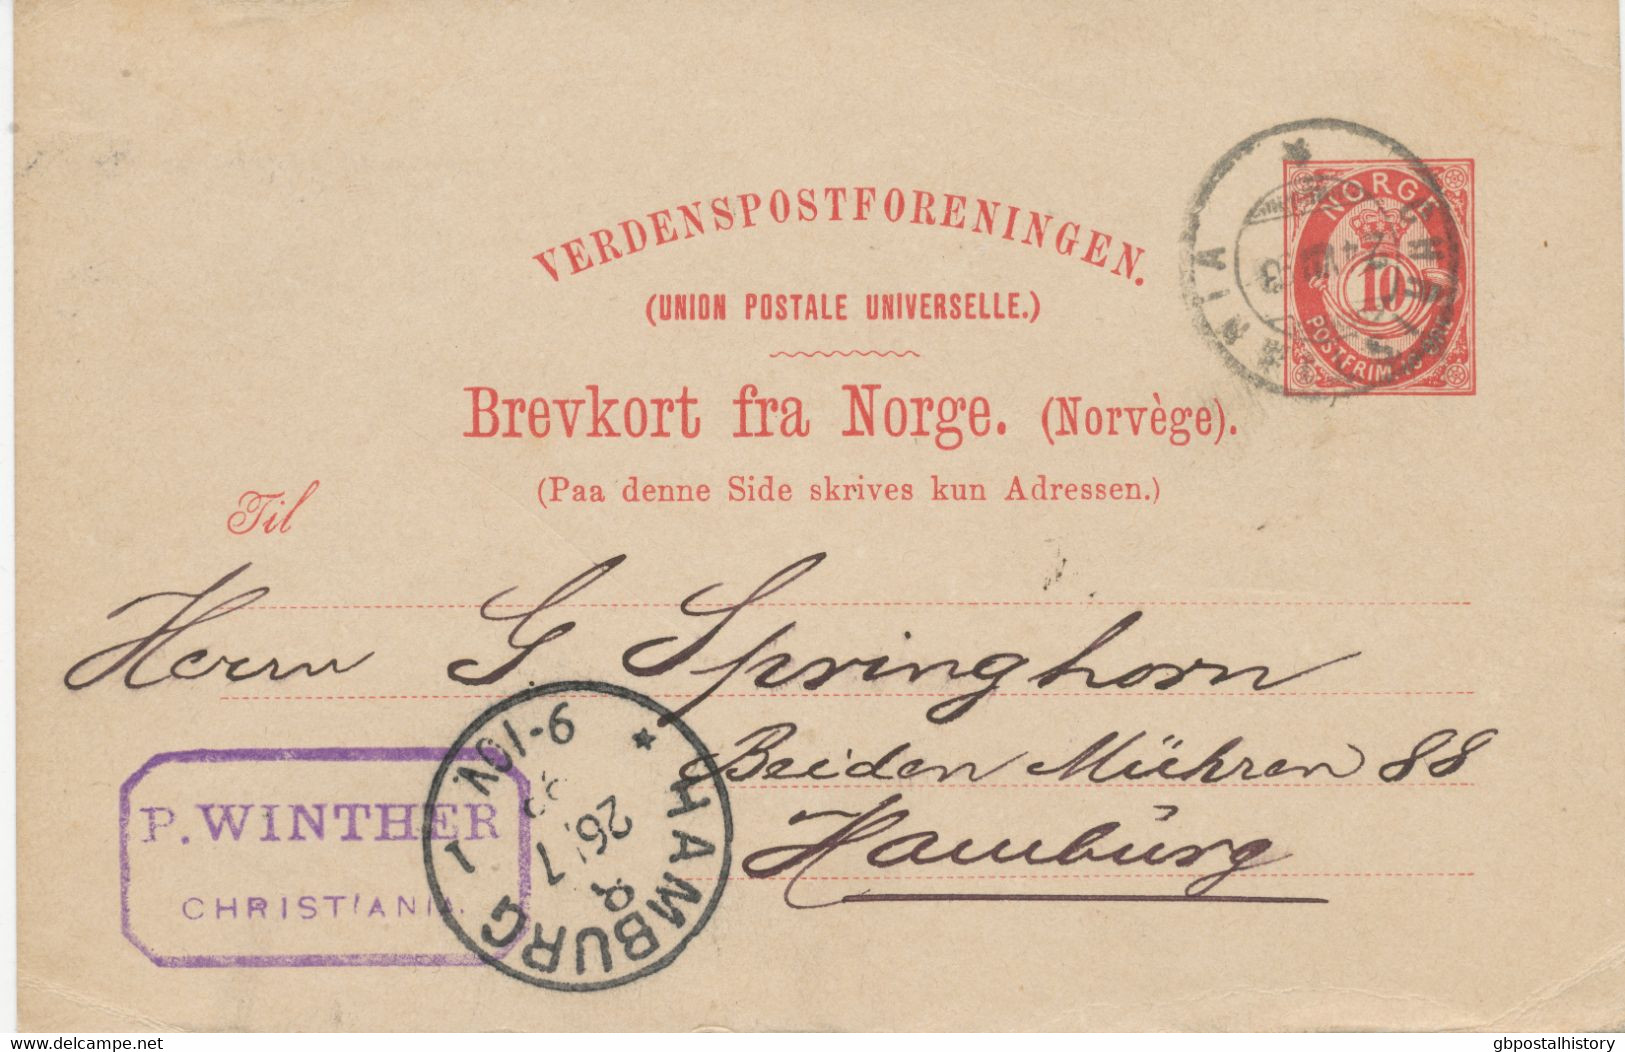 VERDENSPOSTFORENINGEN.
(UNION POSTALE UNIVERSELLE.)
NORGE
10
POSTFRIM.
Brevkort fra Norge. (Norvège).
(Paa denne Side skrives kun Adressen.)
Til
Herrn G Springhorn
Beiden Mühren 88
Hamburg
P. WINTHER
CHRISTIANIA.
HAMBURG 1
26. 7
9-10V
www.delcampe.net
gbpostalhistory